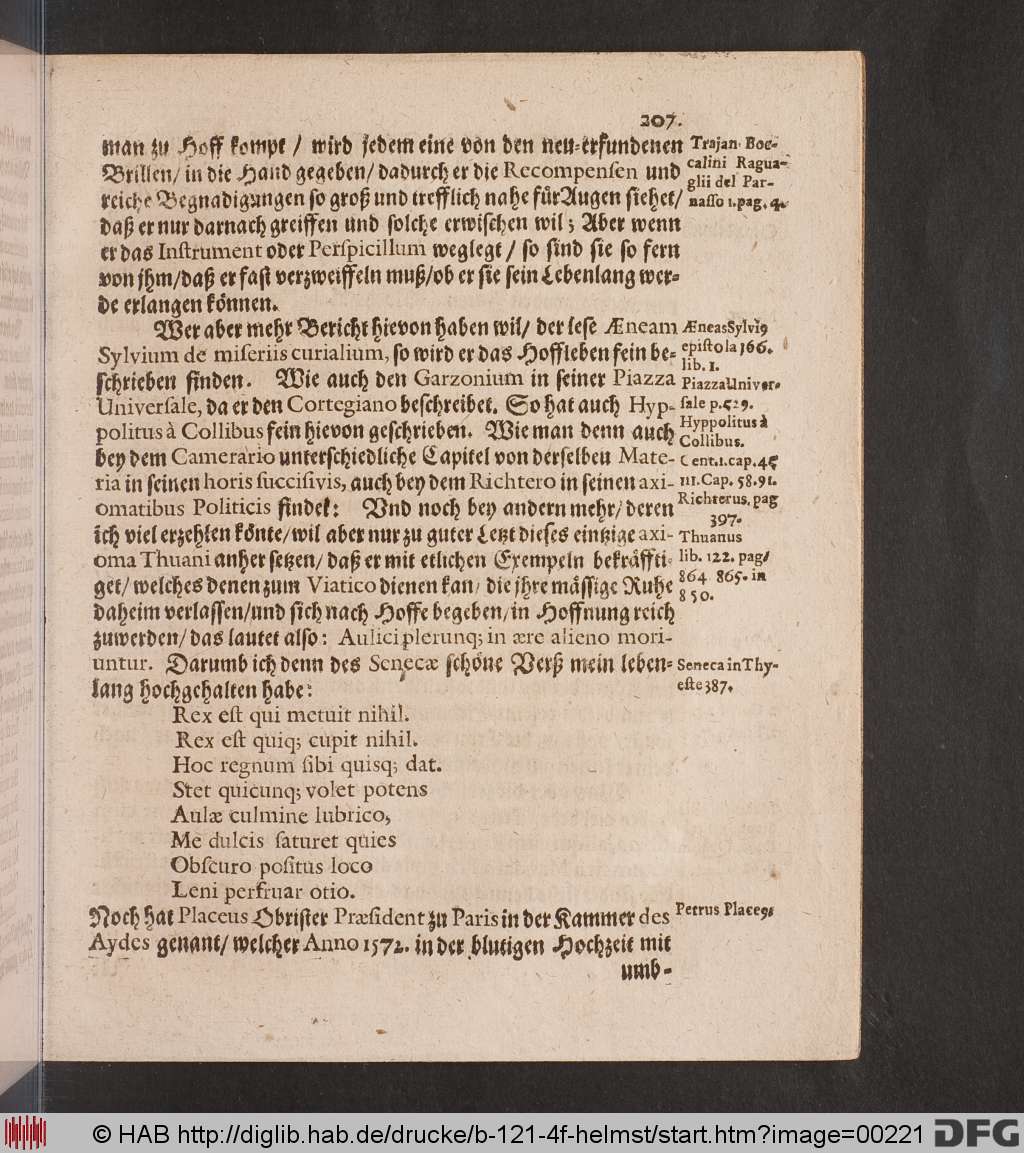 207.
man zu Hoff kompt / wird jedem eine von den neu-erfundenen
Brillen/ in die Hand gegeben/ dadurch er die Recompenſen und
reiche Begnadigungen ſo groß und trefflich nahe für Augen ſiehet/
daß er nur darnach greiffen und ſolche erwiſchen wil; Aber wenn
er das Inſtrument oder Perſpicillum weglegt / ſo ſind ſie ſo fern
von jhm/daß er faſt verzweiffeln muß/ob er ſie ſein Lebenlang wer-
de erlangen können.
Trajan. Boc-
calini Ragua-
glii del Par-
naſſo 1. pag. 4.
Wer aber mehr Bericht hievon haben wil/ der leſe Æneam
Sylvium de miſeriis curialium, ſo wird er das Hoffleben fein be-
ſchrieben finden. Wie auch den Garzonium in ſeiner Piazza
Univerſale, da er den Cortegiano beſchreibet. So hat auch Hyp-
politus à Collibus fein hievon geſchrieben. Wie man denn auch
bey dem Camerario unterſchiedliche Capitel von derſelben Mate-
ria in ſeinen horis ſucciſivis, auch bey dem Richtero in ſeinen axi-
omatibus Politicis findet: Vnd noch bey andern mehr/ deren
ich viel erzehlen könte/ wil aber nur zu guter Letzt dieſes eintzige axi-
oma Thuani anher ſetzen/ daß er mit etlichen Exempeln bekräffti-
get/ welches denen zum Viatico dienen kan/ die jhre mäſſige Ruhe
daheim verlaſſen/und ſich nach Hoffe begeben/in Hoffnung reich
zuwerden/ das lautet alſo: Aulici plerunq; in ære alieno mori-
untur. Darumb ich denn des Senecæ ſchöne Verß mein leben-
lang hochgehalten habe:
Æneas Sylviꝰ
epiſtola 166.
lib. 1.
Piazza Univer-
ſale p. 529.
Hyppolitus à
Collibus.
Cent. 1. cap. 45
III. Cap. 58. 91.
Richterus. pag
397.
Thuanus
lib. 122. pag/
864 865. in
850.
Seneca in Thy-
eſte 387.
Rex eſt qui metuit nihil.
Rex eſt quiq; cupit nihil.
Hoc regnum ſibi quisq; dat.
Stet quicunq; volet potens
Aulæ culmine lubrico,
Me dulcis ſaturet quies
Obſcuro poſitus loco
Leni perfruar otio.
Noch hat Placeus Obriſter Præſident zu Paris in der Kammer des
Aydes genant/ welcher Anno 1572. in der blutigen Hochzeit mit
Petrus Placeꝰ/
umb-
© HAB http://diglib.hab.de/drucke/b-121-4f-helmst/start.htm?image=00221
DFG